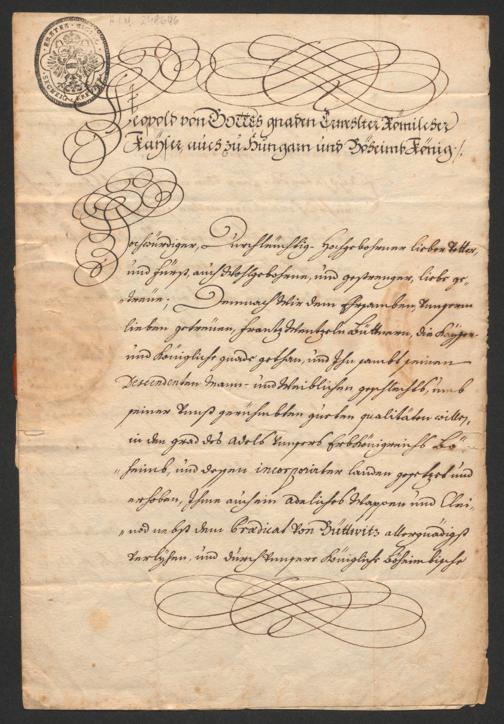 A.I.M. 248696
Leopold von Gottes gnaden Erwehlter Römischer
Kaÿser, auch zu Hungarn und Böheimb König /.
Hochwürdiger, Durchleüchtig-Hochgebohrner lieber Vetter,
und Fürst, auch Wohlgebohrne, und gestrenger, liebe ge-
=treüe. Demnach Wir dem Ehrsamben, Unserm
lieben getreüen, Frantz Wentzeln Büttnern, die Kaÿser-
und Königliche gnade gethan, und Ihn sambt seinen
Descendenten Mann- und Weiblichen geschlechts, umb
seiner Unß gerühmbten gueten qualitäten willen,
in den grad des Adels Unsers Erbkönigreichs Bö-
=heimb, und dessen incorporirter landen gesetzet und
erhoben, Ihme auch ein adeliches Wappen und Clei-
=nod nebst dem Prædicat von Büttwitz allergnädigst
verlÿhen, und durch Unsere Königliche Böheimbische